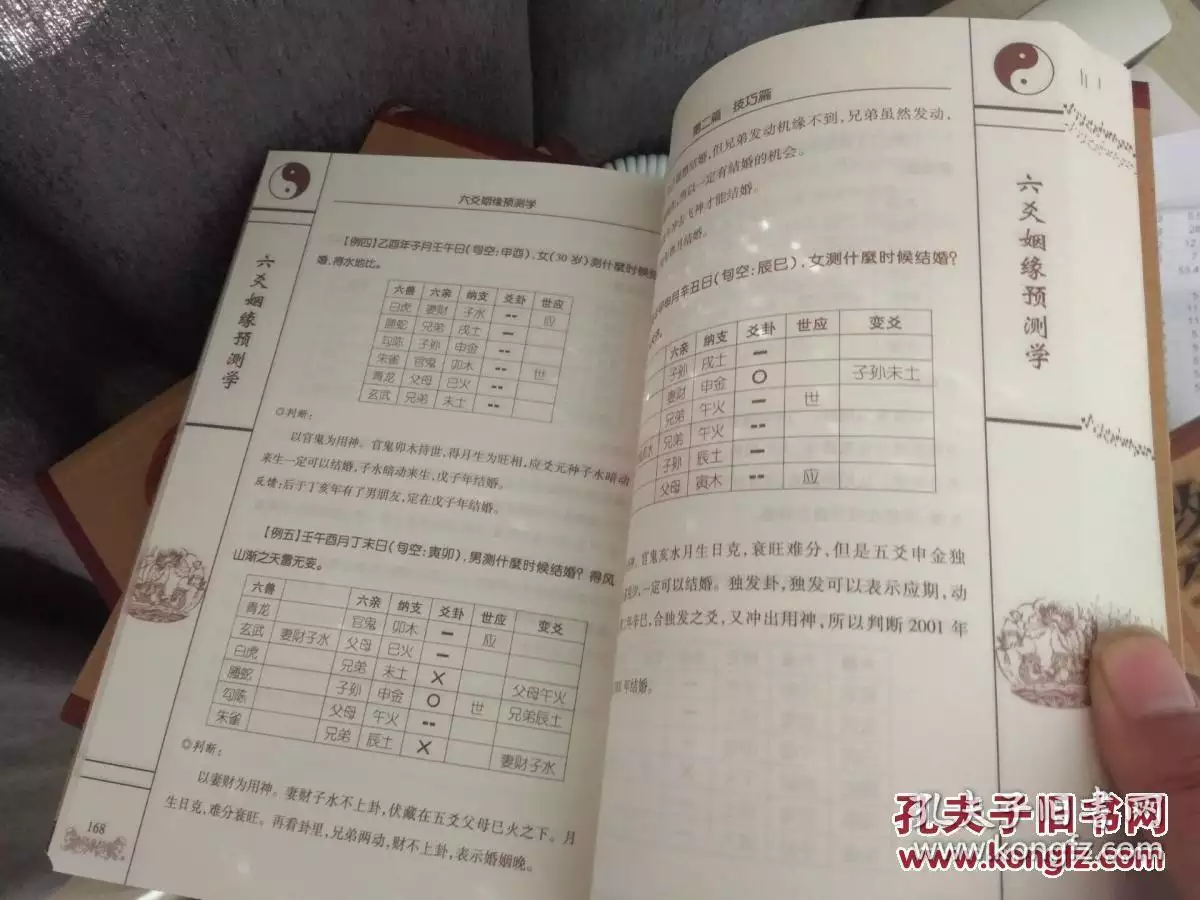 六爻姻缘预测学
六爻姻缘预测学
【例四】乙酉年子月壬午日(旬空:申酉),女(30岁)测什麼时候结
婚,得水地比。
六兽 六亲 纳支 爻卦 世应
白虎 妻财 子水 -- 应
螣蛇 兄弟 戌土 —
勾陈 子孙 申金 --
朱雀 官鬼 卯木 -- 世
青龙 父母 巳火 --
玄武 兄弟 未土 --
◎判断:
以官鬼为用神。官鬼卯木持世,得月生为旺相,应爻元神子水暗动
来生一定可以结婚,子水暗动来生,戊子年结婚。
反馈:后于丁亥年有了男朋友,定在戊子年结婚。
【例五】壬午酉月丁未日(旬空:寅卯),男测什麼时候结婚?得风
山渐之天雷无妄。
六兽 六亲 纳支 爻卦 世应 变爻
青龙 官鬼 卯木 — 应
玄武 妻财子水 父母 巳火 —
白虎 兄弟 未土 × 父母午火
螣蛇 子孙 申金 ○ 世 兄弟辰土
勾陈 父母 午火 --
朱雀 兄弟 辰土 × 妻财子水
◎判断:
以妻财为用神。妻财子水不上卦,伏藏在五爻父母巳火之下。月
生日克,难分衰旺。再看卦里,兄弟两动,财不上卦,表示婚姻晚。
168
第二篇 技巧篇
结婚,但兄弟发动机缘不到,兄弟虽然发动,
所以一定有结婚的机会。
去飞神才能结婚。
月结婚。
申月辛丑日(旬空:辰巳),女测什麼时候结婚?
六亲 纳支 爻卦 世应 变爻
子孙 戌土 —
妻财 申金 ○ 子孙未土
兄弟 午火 — 世
兄弟 午火 --
子孙 辰土 —
父母 寅木 -- 应
官鬼亥水月生日克,衰旺难分,但是五爻申金独
一定可以结婚。独发卦,独发可以表示应期,动
年辛巳,合独发之爻,又冲出用神,所以判断 2001 年
年结婚。
六爻姻缘预测学
孔夫子旧书网
www.kongfz.com